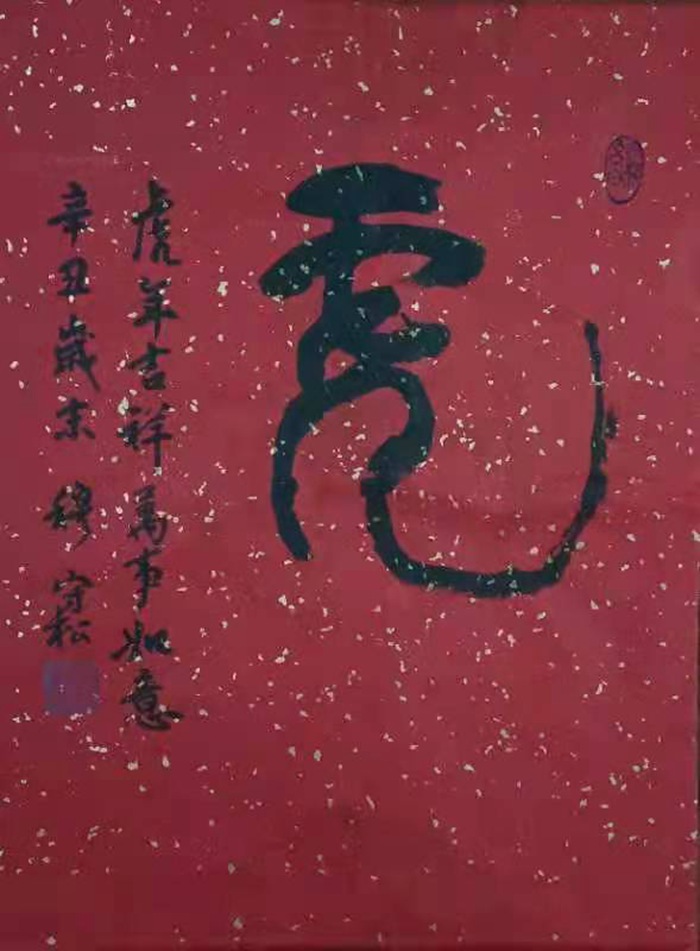 虎
虎年吉祥萬事如意
辛丑歲末 穆守松